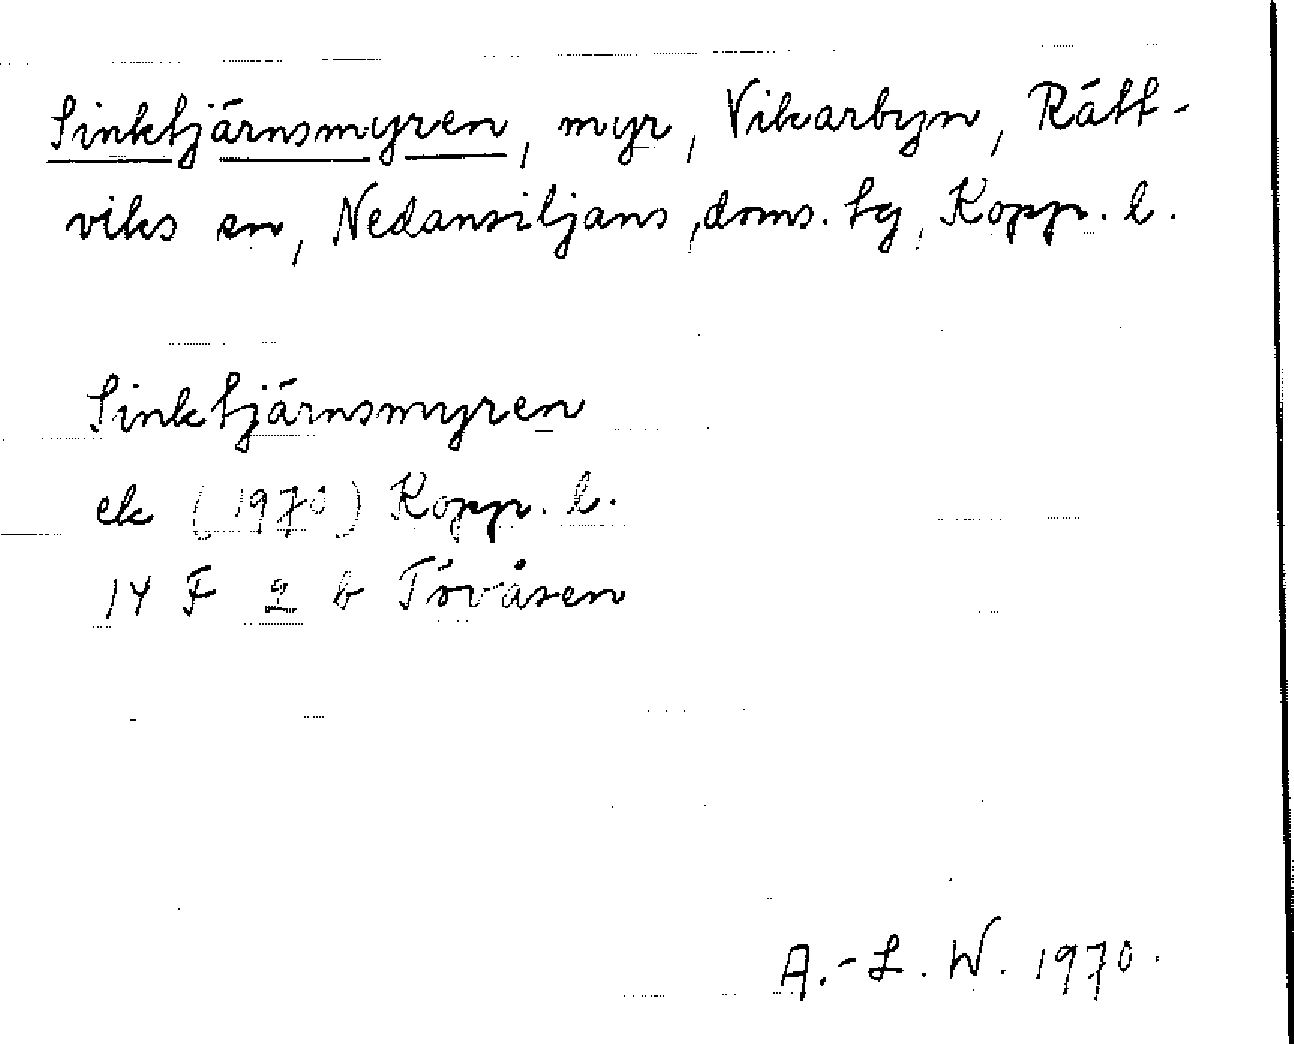 Sinktjärnsmyren, myr, Vikarbyn, Rätt-
viks sn, Nedansiljans, doms. tg, Kopp. l.
Sinktjärnsmyren
ek (1970) Kopp. l.
14 F 2 b Tövåsen
A.-L. W. 1970.